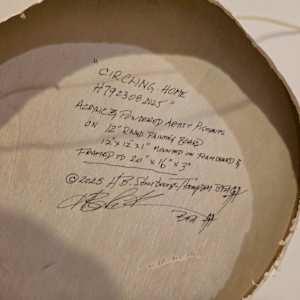 "CIRCLING HOME
H7923082025"
ACRYLIC & POWDERED ARTIST PIGMENTS
ON 12" ROUND PAINTING BOARD
12" x 12" x 1" MOUNTED ON FOAMBOARD &
FRAMED TO 20" x 16" x 3"
© 2025 H.B.